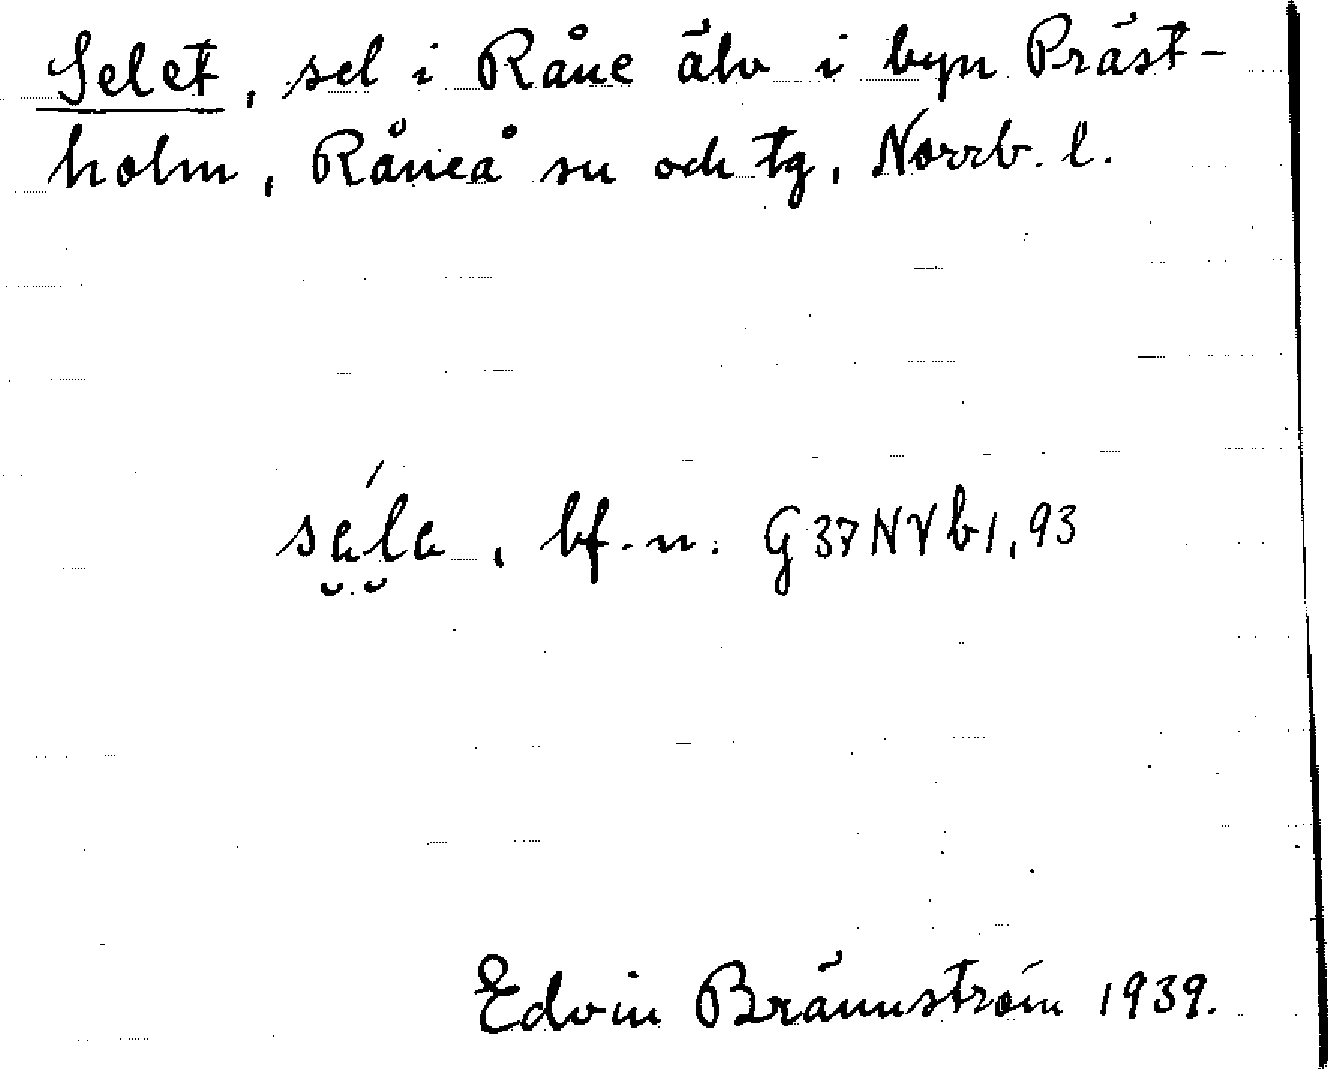 Selet, sel i Råne älv i byn Präst-
holm, Råneå sn och tg, Norrb. l.
bf. n. G 37 N Vb 1, 93
Edvin Brännström 1939.